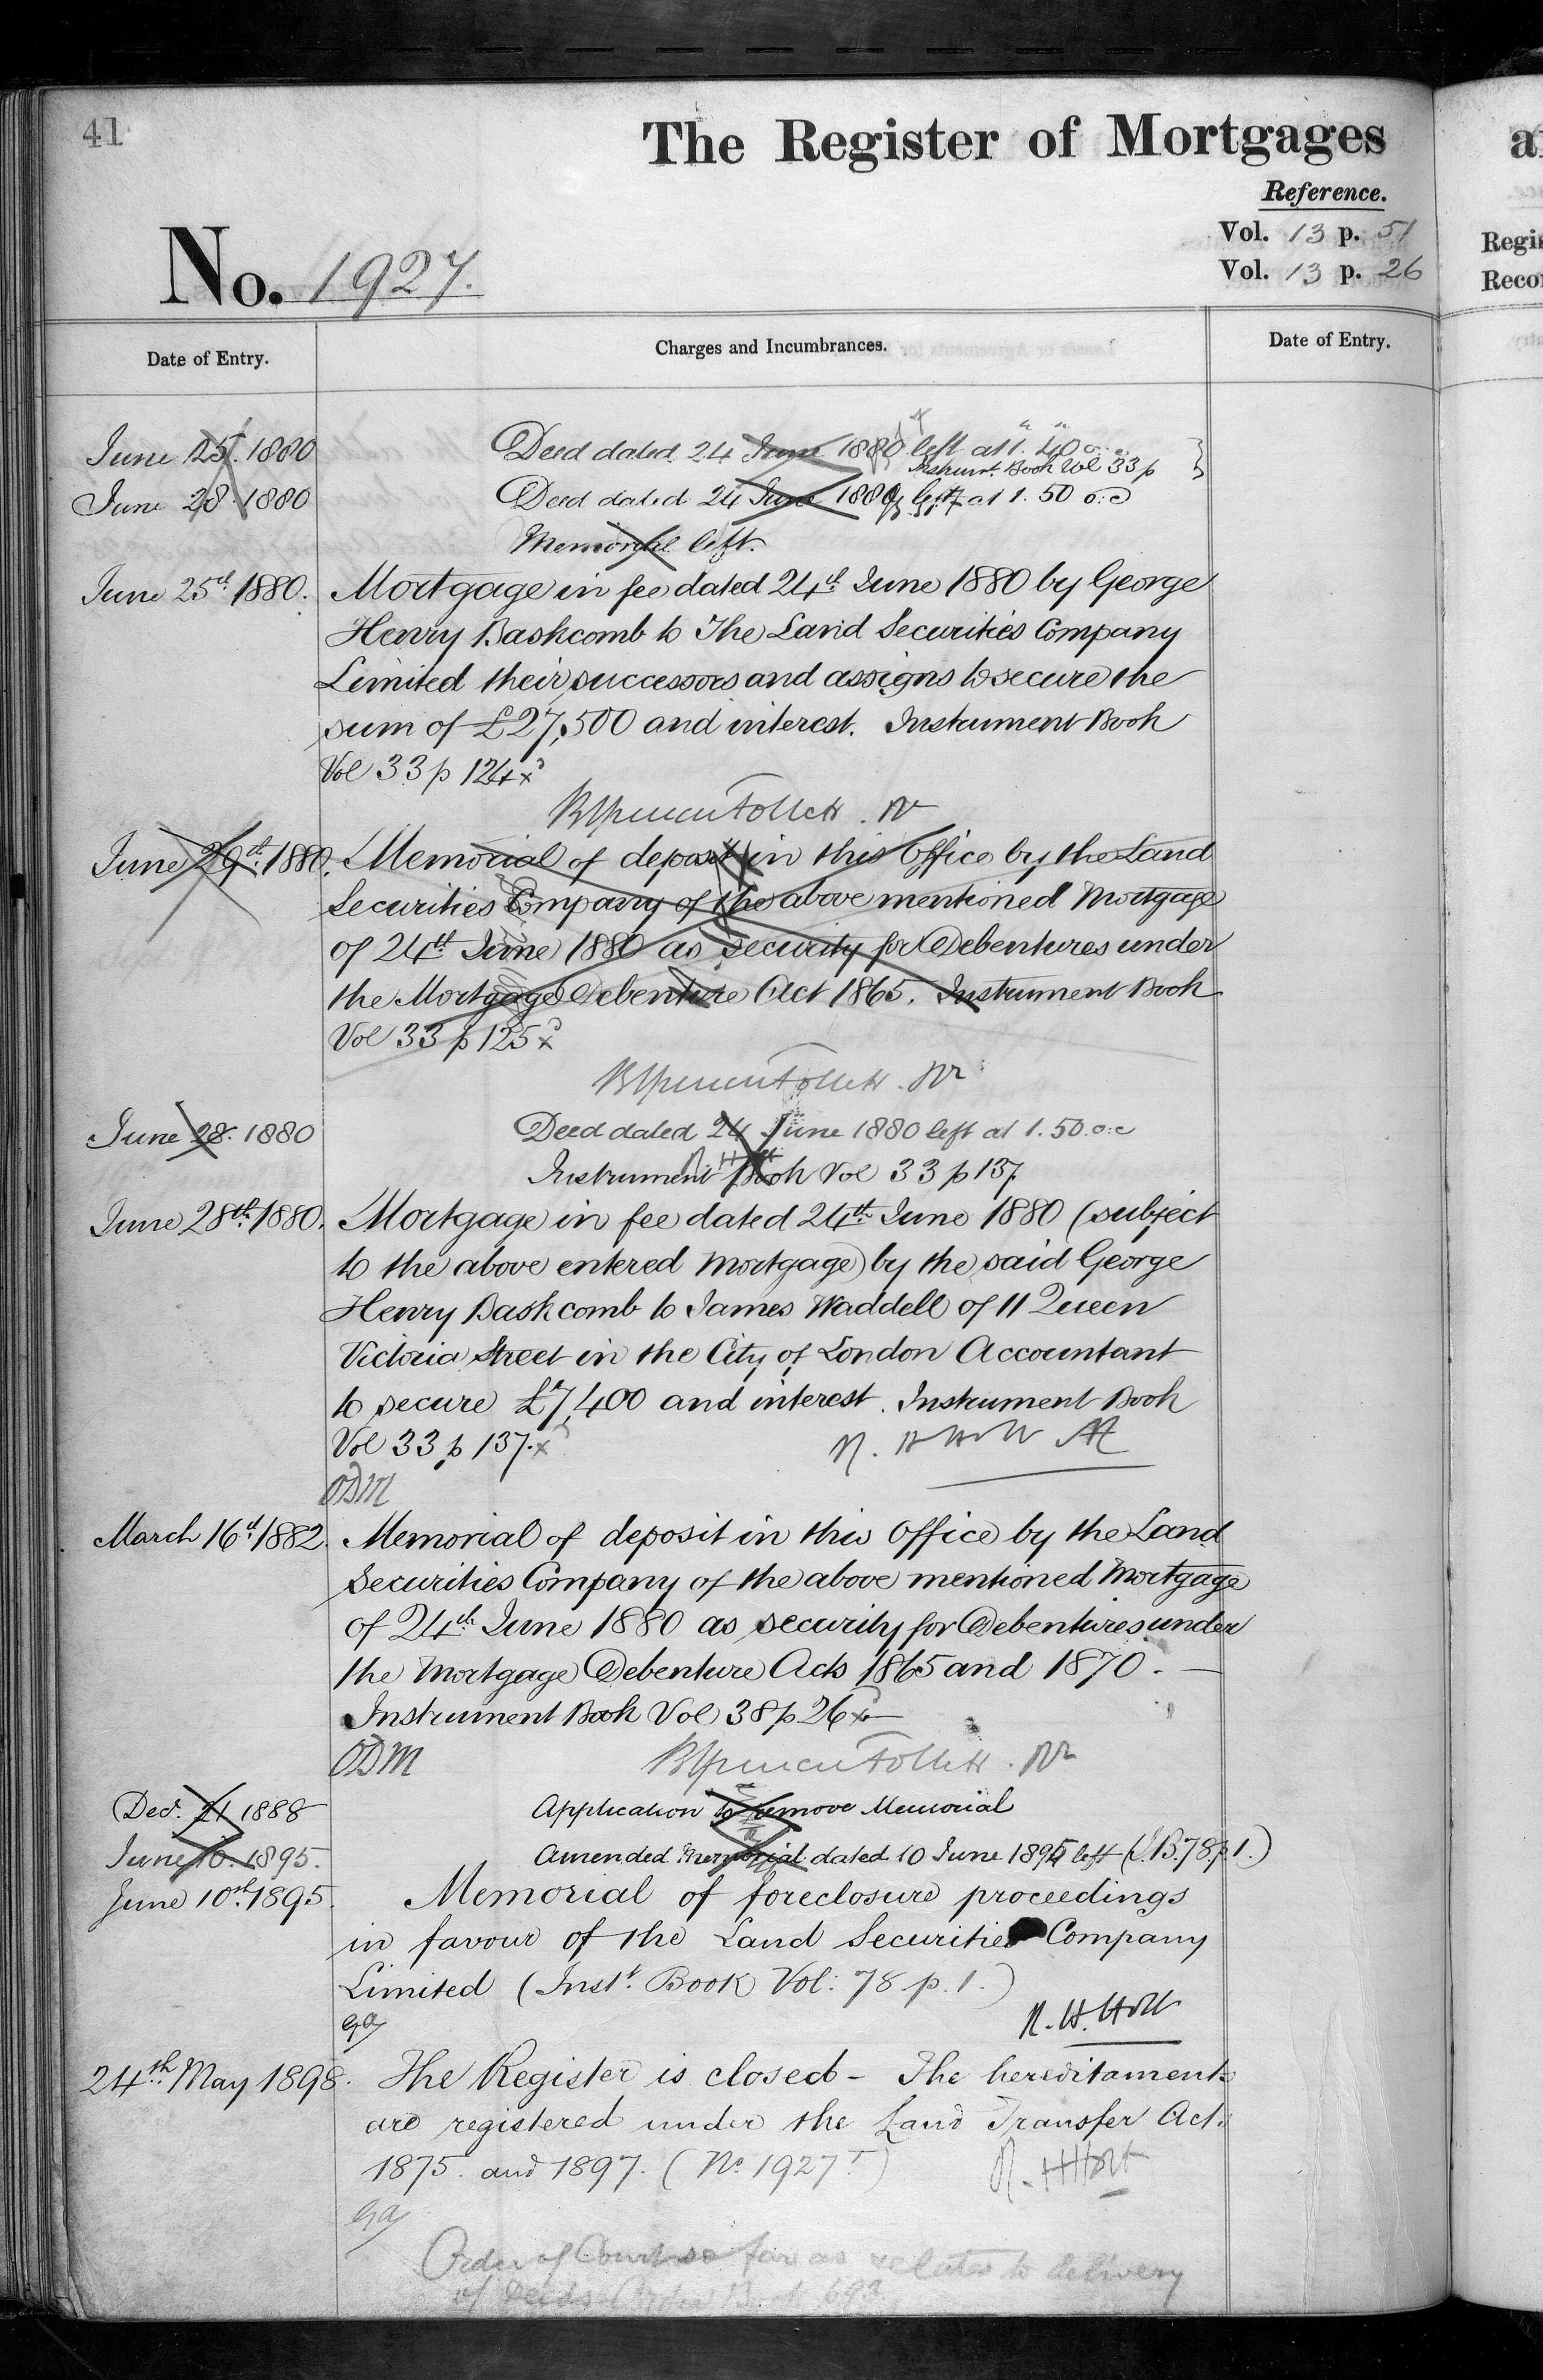 41
The Register of Mortgages
Reference.
Vol. 13 p. 51
No. 1927.
Vol. 13 p. 26
Regis
Recor
Date of Entry.
Charges and Incumbrances.
Date of Entry.
June 25. 1880
Deed dated 24 June 1880 left at 1. 40 o:c
Instrumt. Book Vol 33 p
June 28. 1880
Deed dated 24 June 1880 left at 1. 50 o:c
Memorial left.
June 25th 1880.
Mortgage in fee dated 24th June 1880 by George
Henry Bashcomb to The Land Securities Company
Limited their successors and assigns to secure the
sum of £27,500 and interest. Instrument Book
Vol 33 p 124 x
June 29th 1880.
Memorial of deposit in this Office by the Land
Securities Company of the above mentioned Mortgage
of 24th June 1880 as security for Debentures under
the Mortgage Debenture Act 1865. Instrument Book
Vol 33 p 125 x
June 28. 1880
Deed dated 24 June 1880 left at 1. 50. o:c
Instrument Book Vol 33 p 137
June 28th 1880.
Mortgage in fee dated 24th June 1880 (subject
to the above entered Mortgage) by the said George
Henry Bashcomb to James Waddell of 11 Queen
Victoria Street in the City of London Accountant
to secure £7,400 and interest. Instrument Book
Vol 33 p 137. x
R. H. Holt
ODM
March 16th 1882.
Memorial of deposit in this Office by the Land
Securities Company of the above mentioned Mortgage
of 24th June 1880 as security for Debentures under
the Mortgage Debenture Acts 1865 and 1870. —
Instrument Book Vol 38 p. 26 x
ODM
Dec. 21 1888
Application to remove Memorial
June 10. 1895.
Amended Memorial dated 10 June 1895 left (I.B. 78 p. 1.)
June 10th 1895.
Memorial of foreclosure proceedings
in favour of the Land Securities Company
Limited (Instt. Book Vol: 78 p. 1.)
R. H. Holt
24th May 1898.
The Register is closed - The hereditaments
are registered under the Land Transfer Acts
1875 and 1897. (No. 1927T)
R. H. Holt
Order of Court so far as relates to delivery
of Deeds Order Book 693